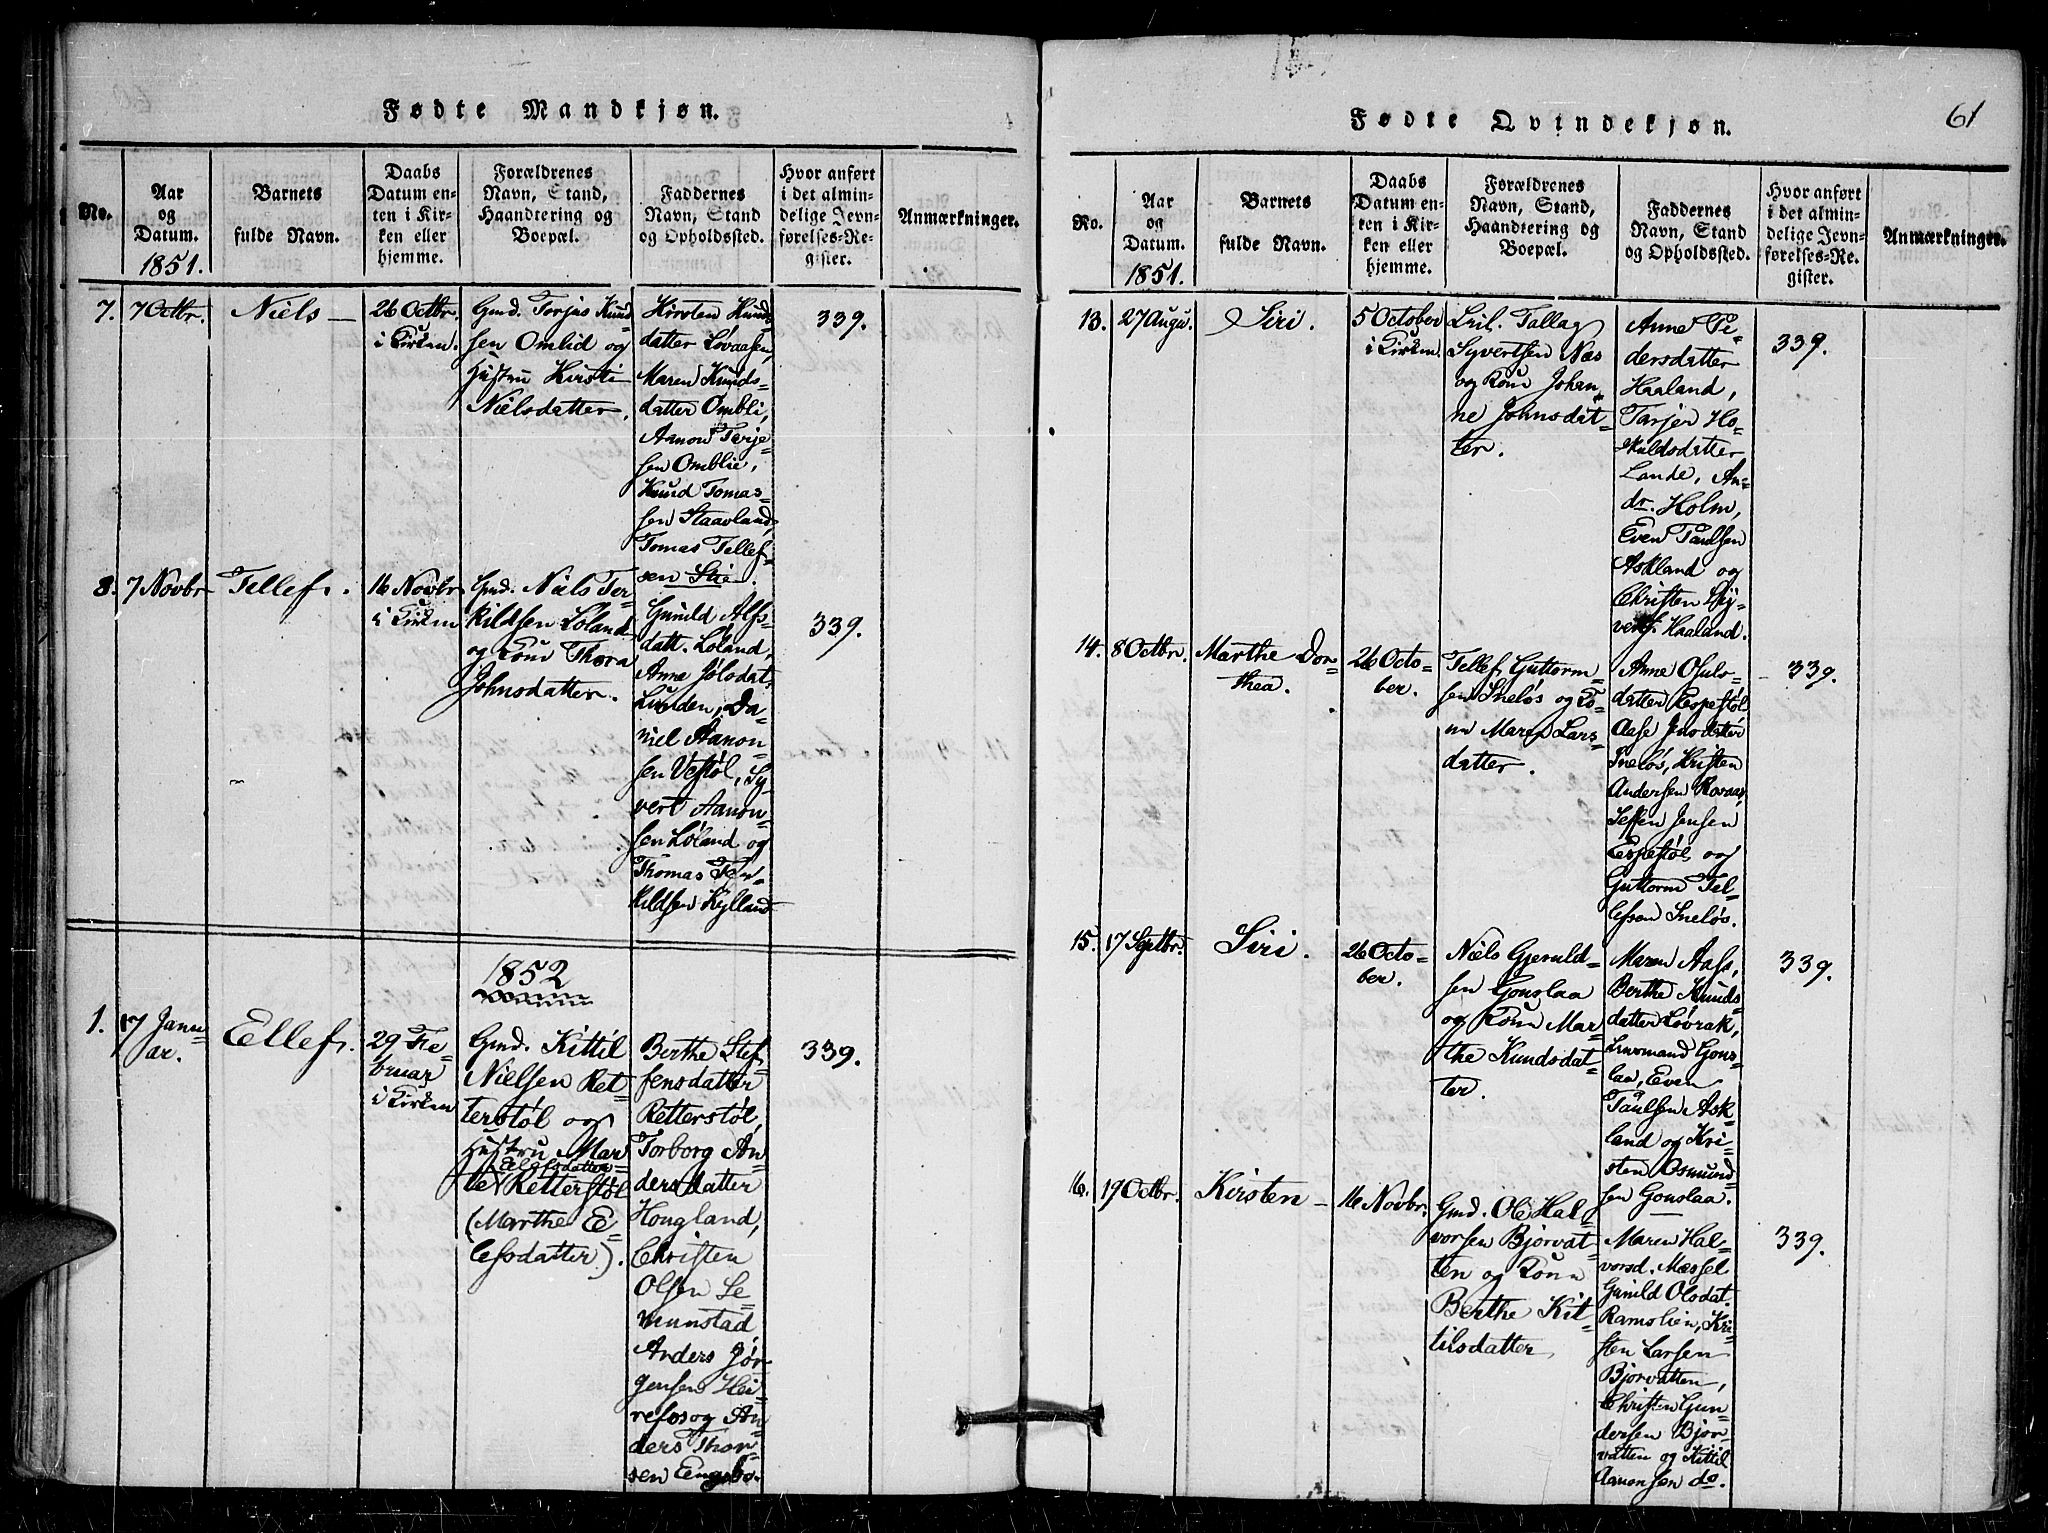 Fødte Mandkjøn.
No.
Aar
og
Datum.
1851.
Barnets
fulde Navn.
Daabs
Datum en-
ten i Kir-
ken eller
hjemme.
Forældrenes
Navn, Stand,
Haandtering og
Boepæl.
Faddernes
Navn, Stand
og Opholdssted.
Hvor anført
i det almin-
delige Jevn-
førelses-Re-
gister.
Anmærkninger.
7.
7 Octbr.
Niels
26 Octbr.
i Kirken.
Gmd. Torjus Knud-
sen Omlid og
Hustru Kirsti
Nielsdatter.
Kirsten Knud-
datter Løvaasen,
Maren Knuds-
datter Ombli,
Aanon Terje-
sen Omblie,
Knud Tomas-
sen Staavland,
Tomas Tellef-
sen Lie.
339.
8.
7 Novbr
Tellef.
16 Novbr
i Kirken
Gmd. Niels Ter-
kildsen Løland
og Kone Thora
Johnsdatter.
Gunild Alfs-
datt. Løland,
Anne Jølsdat
Lunden, Da-
niel Aanon-
sen Vestøl, Sy-
vert Aanon-
sen Løland og
Thomas Ter-
kildsen Kylland
339.
1852
1.
17 Janu-
ar.
Ellef.
29 Fe-
bruar
i Kirken
Gmd. Kittil
Nielsen Ret-
terstøl og
Hustru Mar-
Ellefsdatter
te Retterstøl
(Marthe E-
lefsdatter).
Berthe Stef-
fensdatter
Retterstøl,
Torborg An-
dersdatter
Hougland,
Christen
Olsen Le-
vunstad
Anders Jør-
gensen Hei-
refos og An-
ders Thor-
sen Eengebo.
339.
61
Fødte Qvindekjøn.
No.
Aar
og
Datum.
1851.
Barnets
fulde Navn.
Daabs
Datum en-
ten i Kir-
ken eller
hjemme.
Forældrenes
Navn, Stand,
Haandtering og
Boepæl.
Faddernes
Navn, Stand
og Opholdssted.
Hvor anført
i det almin-
delige Jevn-
førelses-Re-
gister.
Anmærkninger.
13.
27 Augu.
Siri.
5 October
i Kirken
Tallag
Syvertsen Næs
og Kone Johan-
ne Johnsdat-
ter.
Anne Pe-
dersdatter
Haaland,
Tarjer Ho-
skuldsdatter
Lande, An-
dr. Holm,
Even Taulsen
Askland og
Christen Sy-
verts. Haaland.
339.
14.
8 Octbr.
Marthe Dor-
thea.
26 Octo-
ber.
Tellef Guttorm-
sen Sneløs og Ko-
ne Maren Lars-
datter.
Anne Ojuls-
datter Espestøl
Aase Jensdatter
Sneløs, Kristen
Andersen Rovaas,
Seffen Jensen
Espestøl og
Guttorm Tel-
lefsen Sneløs.
339.
15.
17 Septbr.
Siri.
26 Octo-
ber.
Niels Gjeruld-
sen Gonslaa
og Kone Mar-
the Knudsdat-
ter.
Maren Aass,
Berthe Knuds-
datter Løvrak,
Lensmand Gons-
laa, Even
Taulsen Ask-
land og Kri-
sten Osmund-
sen Gonslaa.
339.
16.
19 Octbr.
Kirsten
16 Novbr.
Gmd. Ole Hal-
vorsen Bjorvat-
ten og Kone
Berthe Kit-
tilsdatter
Maren Hal-
vorsd. Messel
Gunild Olsdat.
Ramslien, Kri-
sten Larsen
Bjorvatten,
Christen Gun-
dersen Bjor-
vatten og Kittil
Aanonsen do.
339.